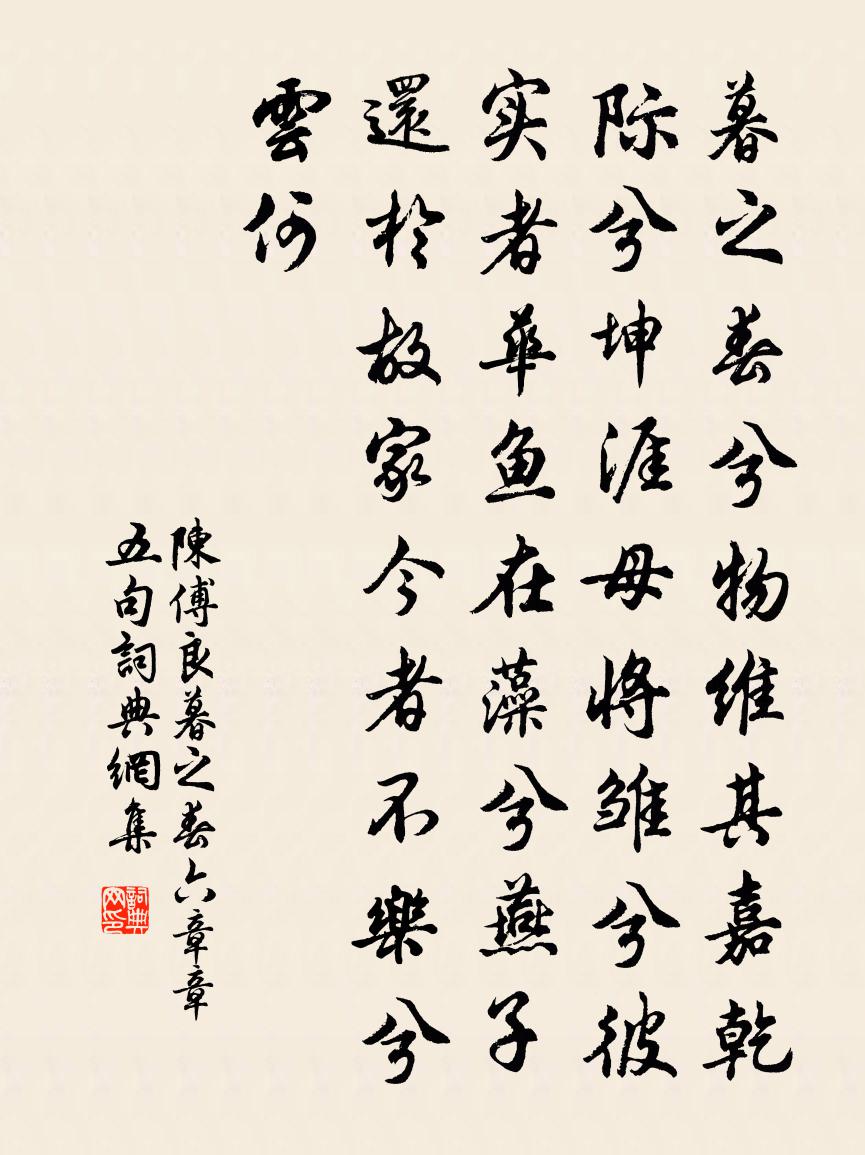 暮之春兮物维其嘉乾
际兮坤涯母将雏兮彼
实者華鱼在藻兮燕子
還於故家今者不樂兮
雲何
陳傅良暮之春六章章
五句詞典網集
詞典
网印